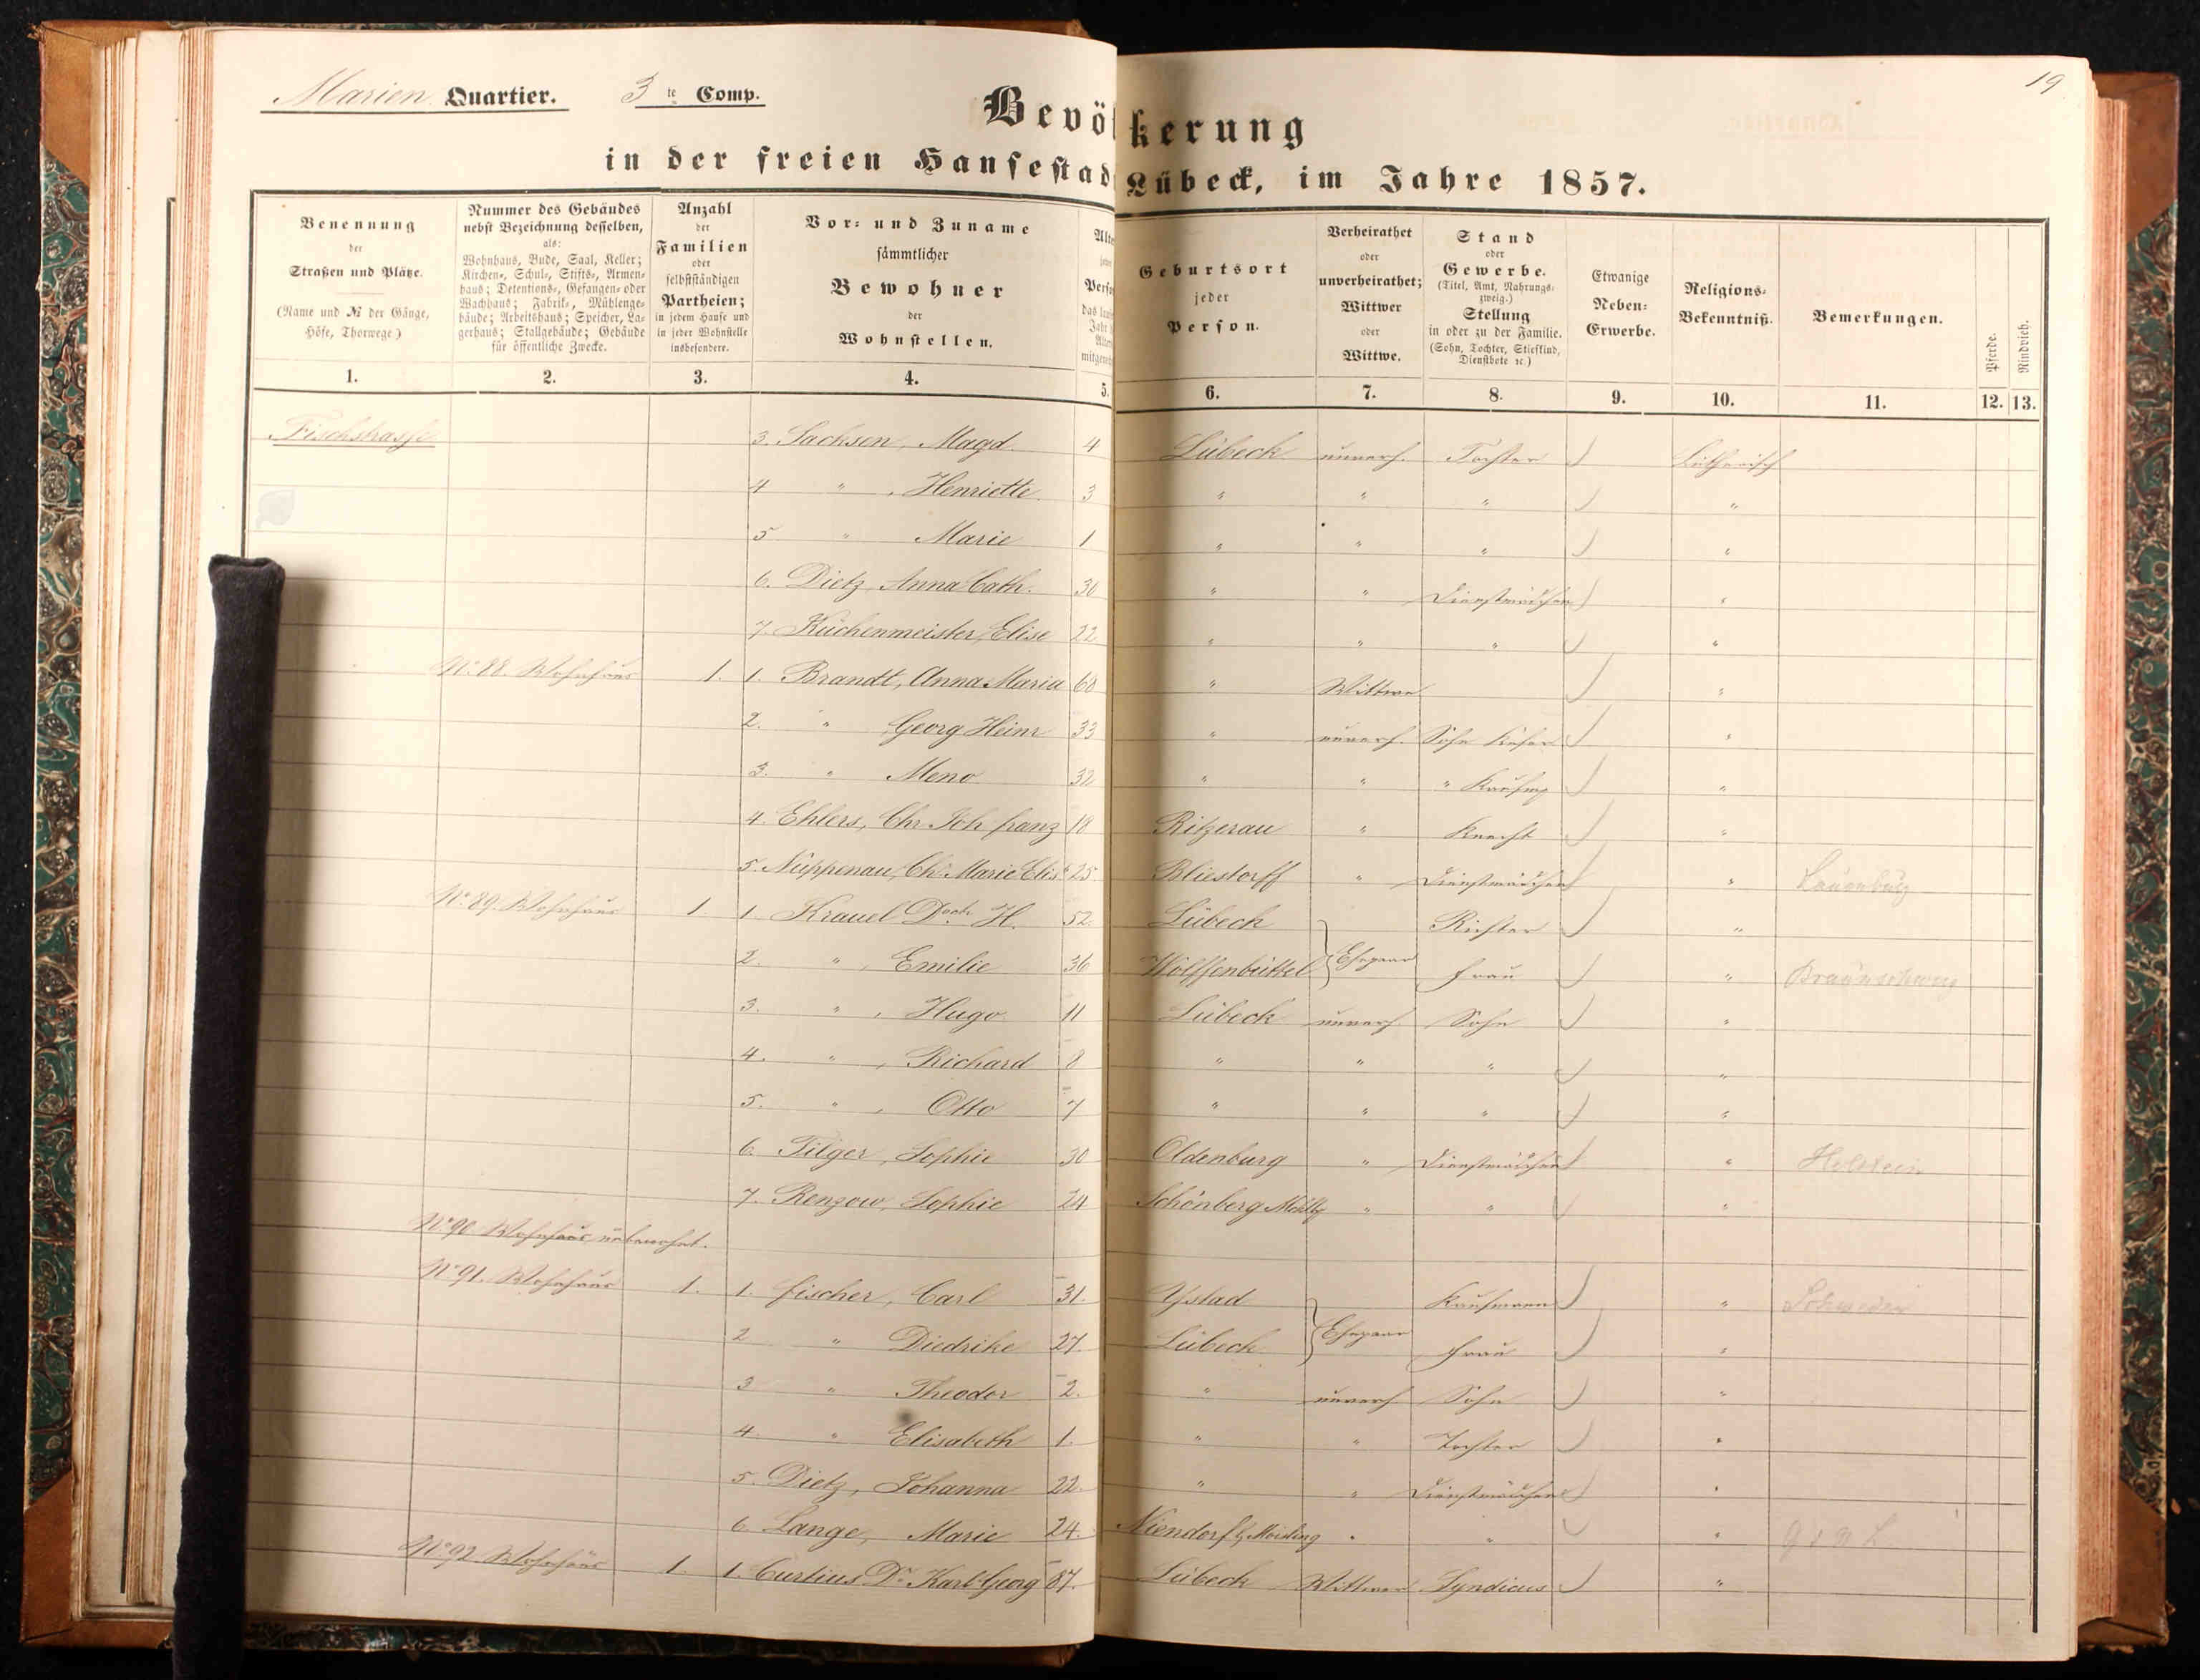 19
Marien Quartier. 3 te Comp.
Bevölkerung
in der freien Hansestadt Lübeck, im Jahre 1857.
Benennung
der
Straßen und Plätze.
(Name und № der Gänge,
Höfe, Thorwege)
Nummer des Gebäudes
nebst Bezeichnung desselben,
als:
Wohnhaus, Bude, Saal, Keller;
Kirchen-, Schul-, Stifts-, Armen-
haus; Detentions-, Gefangen- oder
Wachhaus; Fabrik-, Mühlenge-
bäude; Arbeitshaus; Speicher, La-
gerhaus; Stallgebäude; Gebäude
für öffentliche Zwecke.
Anzahl
der
Familien
oder
selbstständigen
Partheien;
in jedem Hause und
in jeder Wohnstelle
insbesondere.
Vor- und Zuname
sämmtlicher
Bewohner
der
Wohnstellen.
Geburtsort
jeder
Person.
Verheirathet
oder
unverheirathet;
Wittwer
oder
Wittwe.
Stand
oder
Gewerbe.
(Titel, Amt, Nahrungs-
zweig.)
Stellung
in oder zu der Familie.
(Sohn, Tochter, Stiefkind,
Dienstbote ꝛc.)
Etwanige
Neben-
Erwerbe.
Religions-
Bekenntniß.
Bemerkungen.
Pferde.
Rindvieh.
1. 2. 3. 4. 5. 6. 7. 8. 9. 10. 11. 12. 13.
Fischstrasse 3. Sachsen, Magd. 4 Lübeck unverh. Tochter Lutherisch
4 " , Henriette. 3 " " " "
5 " Marie 1 " " " "
6. Dietz, Anna Cath. 30 " " Dienstmädchen "
7. Küchenmeister, Elise 22 " " " "
No. 88. Wohnhaus 1. 1. Brandt, Anna Maria 68 " Wittwe "
2. " Georg Heinr 33 " unverh. Sohn "
3. " Meno 32 " " " Kaufm "
4. Ehlers, Chr. Joh. franz 18 Ritzerau " Knecht "
5. Nüppenau, Ch. Marie Elis. 25 Bliestorff " Dienstmädchen " Lauenburg
No. 89. Wohnhaus 1. 1. Krauel Doct. H. 52 Lübeck Ehepaar Richter "
2. " , Emilie 36 Wolffenbüttel Frau " Braunschweig
3. " , Hugo 11 Lübeck unverh Sohn "
4. " , Richard 8 " " " "
5. " , Otto 7 " " " "
6. Tilger, Sophie 30 Oldenburg " Dienstmädchen " Holstein
7. Renzow, Sophie 24 Schönberg Mcklbg " " "
No. 90 Wohnhaus unbewohnt.
No. 91. Wohnhaus 1. 1. fischer, Carl 31. Ystad Ehepaar Kaufmann " Schweden
2 " Diedrike 27. Lübeck Frau "
3 " Theodor 2. " unverh Sohn "
4. " Elisabeth 1. " " Tochter "
5. Dietz, Johanna 22. " " Dienstmädchen "
6. Lange, Marie 24. Niendorf b. Moisling " " "
No. 92 Wohnhaus 1. 1. Curtius Dr. Karl Georg 87. Lübeck Wittwer Syndicus "